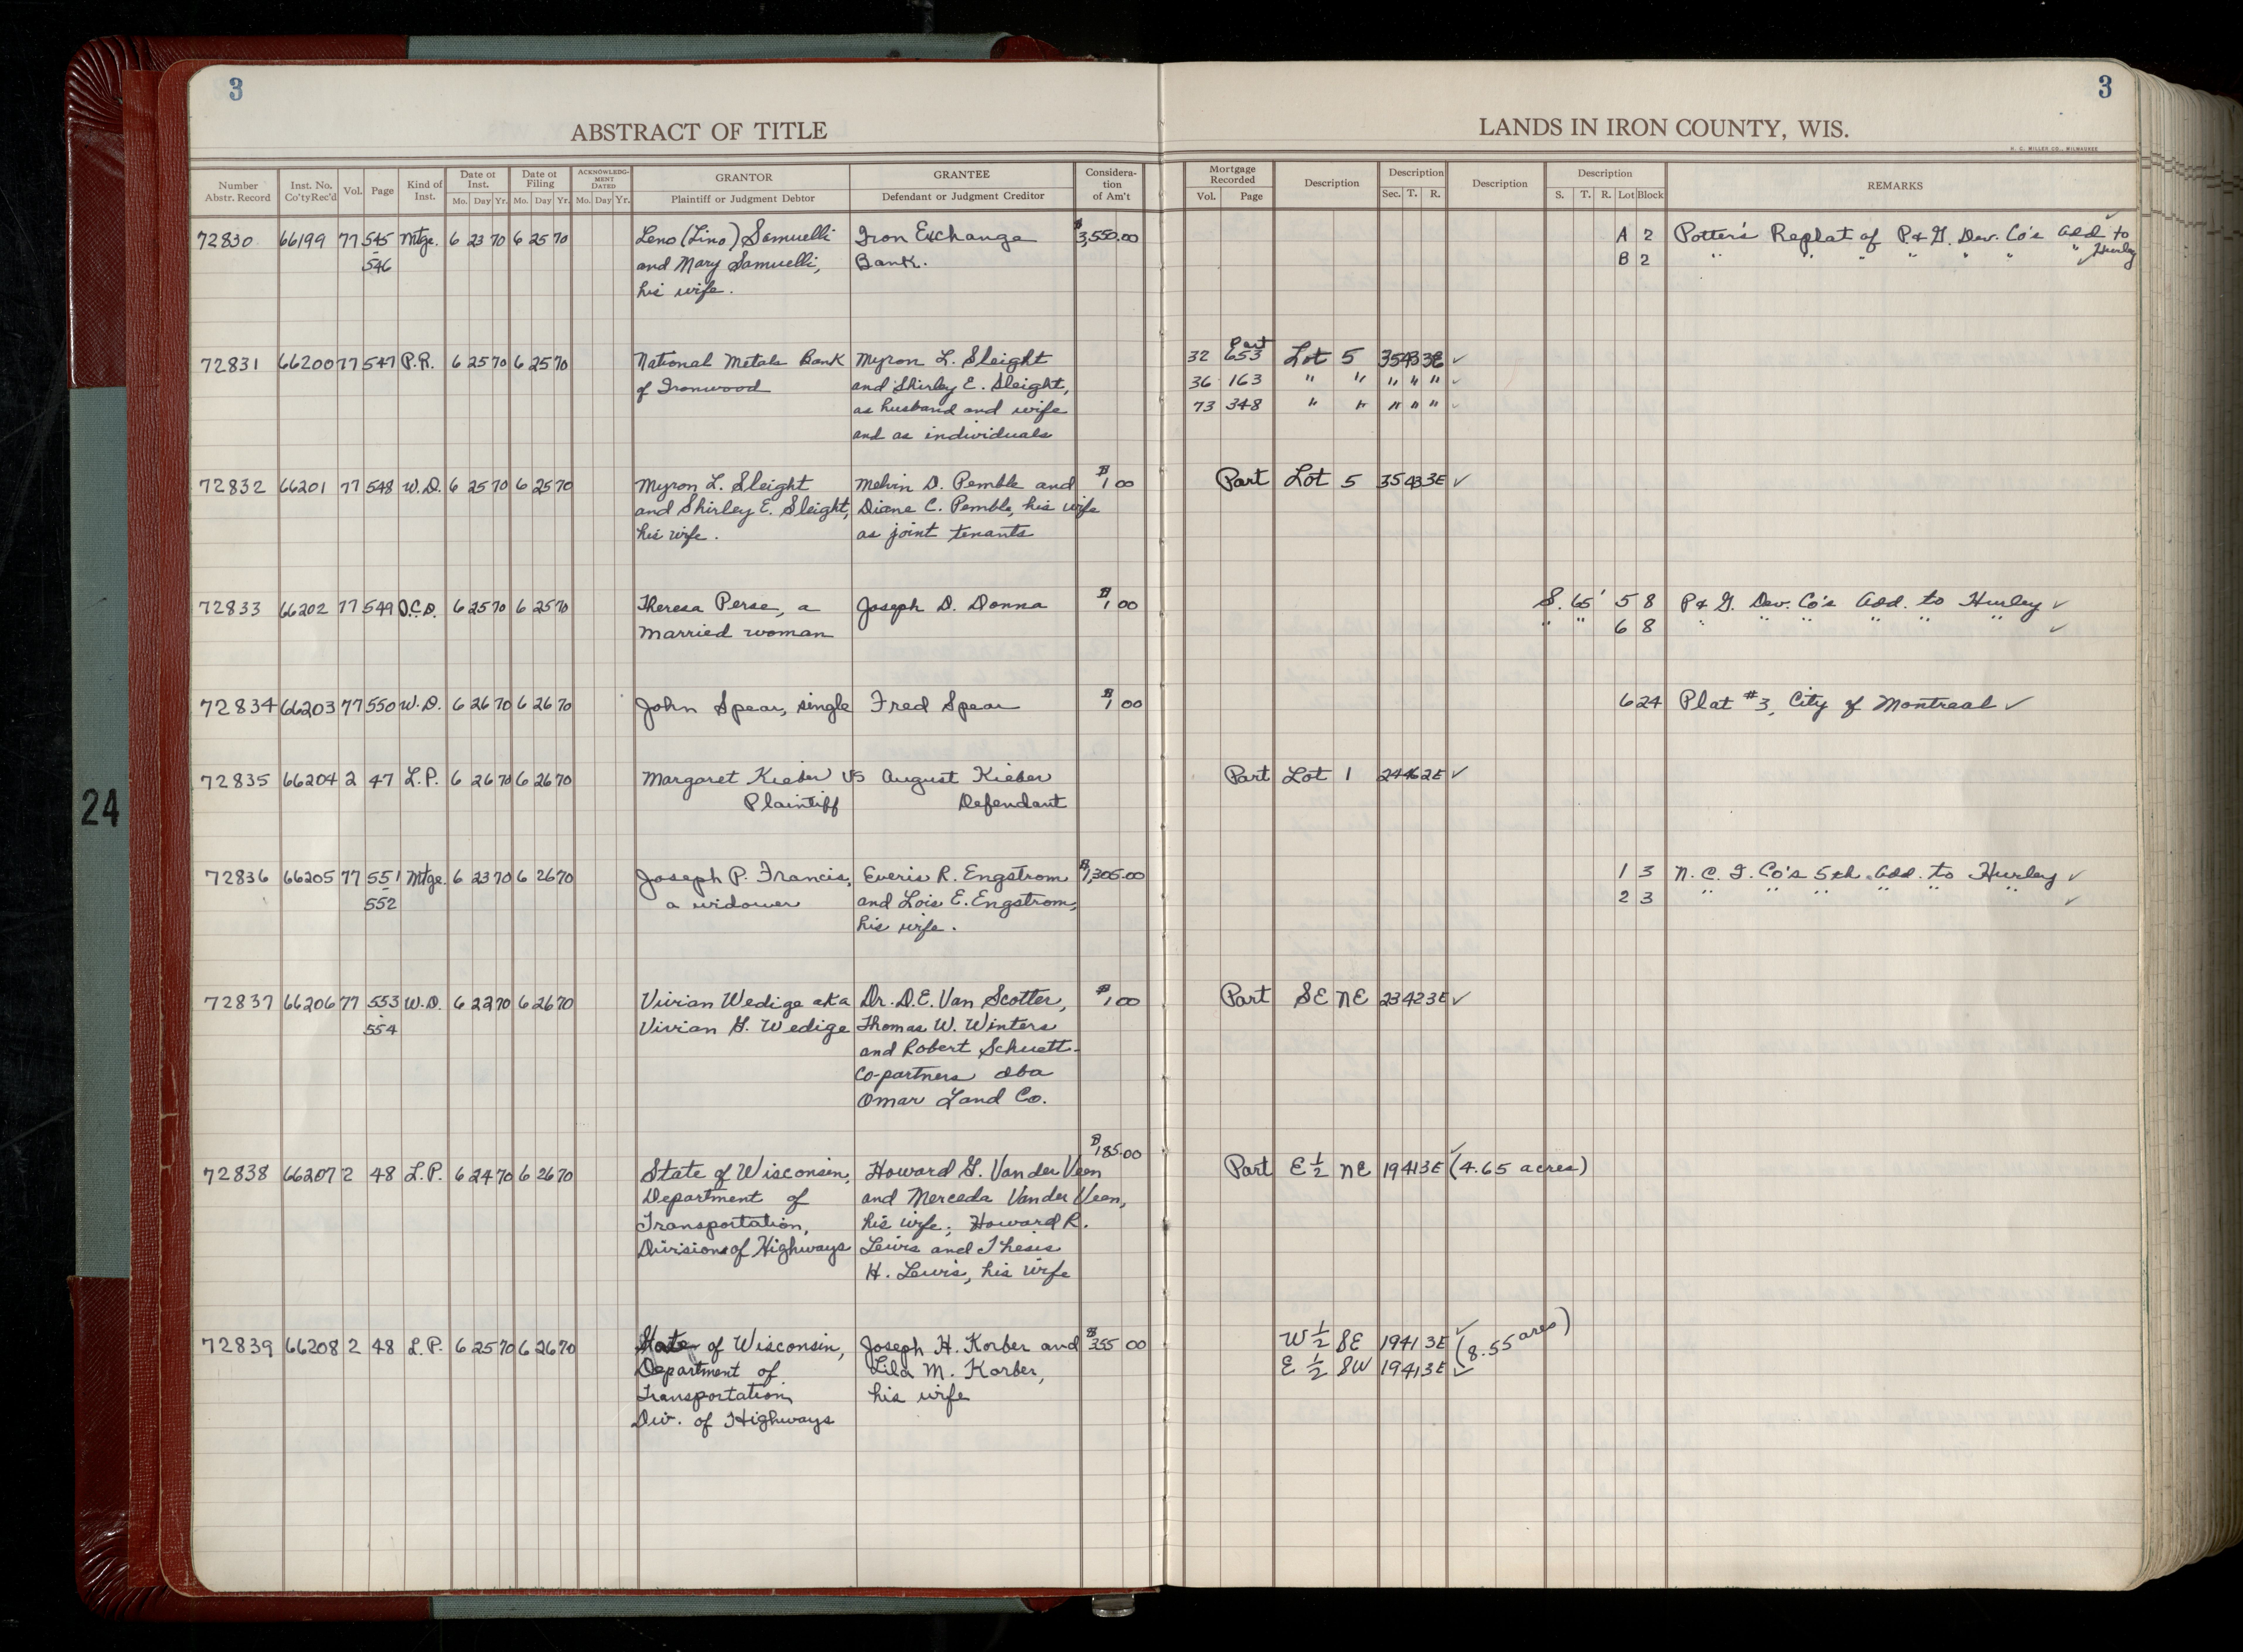 3
3
ABSTRACT OF TITLE
LANDS IN IRON COUNTY, WIS.
H. C. MILLER CO., MILWAUKEE
Number Abstr. Record | Inst. No. Co'tyRec'd | Vol. | Page | Kind of Inst. | Date of Inst. Mo. Day Yr. | Date of Filing Mo. Day Yr. | ACKNOWLEDGMENT DATED Mo. Day Yr. | GRANTOR Plaintiff or Judgment Debtor | GRANTEE Defendant or Judgment Creditor | Consideration of Am't | Mortgage Recorded Vol. Page | Description | Description Sec. T. R. | Description | Description S. T. R. Lot Block | REMARKS
72830 66199 77 545 Mtge. 6 23 70 6 25 70 Leno (Lino) Samuelli Iron Exchange $3,550.00 A 2 Potter's Replat of P. & G. Dev. Co's Add to
546 and Mary Samuelli, Bank. B 2 " " " " " " " Hurley
his wife.
72831 66200 77 547 P.R. 6 25 70 6 25 70 National Metals Bank Myron L. Sleight 32 653 Part Lot 5 35 43 3E ✓
of Ironwood and Shirley E. Sleight, 36 163 " " " " " ✓
as husband and wife 73 348 " " " " " ✓
and as individuals
72832 66201 77 548 W.D. 6 25 70 6 25 70 Myron L. Sleight Melvin D. Pemble and $1 00 Part Lot 5 35 43 3E ✓
and Shirley E. Sleight, Diane C. Pemble, his wife
his wife. as joint tenants
72833 66202 77 549 Q.C.D. 6 25 70 6 25 70 Theresa Perse, a Joseph D. Donna $1 00 S. 65' 5 8 P & G. Dev. Co's Add. to Hurley ✓
married woman " " 6 8 " " " " " " ✓
72834 66203 77 550 W.D. 6 26 70 6 26 70 John Spear, single Fred Spear $1 00 6 24 Plat #3, City of Montreal ✓
72835 66204 2 47 L.P. 6 26 70 6 26 70 Margaret Kieber vs August Kieber Part Lot 1 24 46 2E ✓
Plaintiff Defendant
72836 66205 77 551 Mtge. 6 23 70 6 26 70 Joseph P. Francis, Everis R. Engstrom $7,305.00 1 3 N. C. I. Co's 5th Add. to Hurley ✓
552 a widower and Lois E. Engstrom, 2 3 " " " " " " ✓
his wife.
72837 66206 77 553 W.D. 6 22 70 6 26 70 Vivian Wedige aka Dr. D.E. Van Scotter, $1 00 Part SE NE 23 42 3E ✓
554 Vivian G. Wedige Thomas W. Winters
and Robert Schuett
Co-partners dba
Omar Land Co.
$185.00
72838 66207 2 48 L.P. 6 24 70 6 26 70 State of Wisconsin, Howard G. Van der Veen Part E ½ NE 19 41 3E (4.65 acres) ✓
Department of and Merceda Vander Veen,
Transportation, his wife; Howard R.
Division of Highways Lewis and Thesis
H. Lewis, his wife
72839 66208 2 48 L.P. 6 25 70 6 26 70 State of Wisconsin, Joseph H. Korber and $355 00 W ½ SE 19 41 3E ✓ (8.55 acres)
Department of Lila M. Korber, E ½ SW 19 41 3E ✓
Transportation his wife
Div. of Highways
24